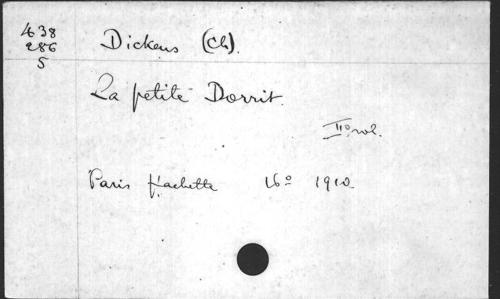 438
286
5
Dickens (Ch).
La petite Dorrit.
IIº vol.
Paris Hachette 16º 1910